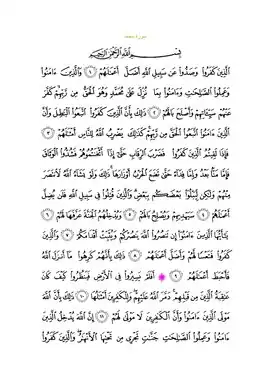 سورة محمد
بِسْمِ اللَّهِ الرَّحْمَٰنِ الرَّحِيمِ
الَّذِينَ كَفَرُوا وَصَدُّوا عَن سَبِيلِ اللَّهِ أَضَلَّ أَعْمَٰلَهُمْ ١ وَالَّذِينَ ءَامَنُوا
وَعَمِلُوا الصَّٰلِحَٰتِ وَءَامَنُوا بِمَا نُزِّلَ عَلَىٰ مُحَمَّدٍ وَهُوَ الْحَقُّ مِن رَّبِّهِمْ كَفَّرَ
عَنْهُمْ سَيِّـَٔاتِهِمْ وَأَصْلَحَ بَالَهُمْ ٢ ذَٰلِكَ بِأَنَّ الَّذِينَ كَفَرُوا اتَّبَعُوا الْبَٰطِلَ وَأَنَّ
الَّذِينَ ءَامَنُوا اتَّبَعُوا الْحَقَّ مِن رَّبِّهِمْ كَذَٰلِكَ يَضْرِبُ اللَّهُ لِلنَّاسِ أَمْثَٰلَهُمْ ٣
فَإِذَا لَقِيتُمُ الَّذِينَ كَفَرُوا فَضَرْبَ الرِّقَابِ حَتَّىٰ إِذَا أَثْخَنتُمُوهُمْ فَشُدُّوا الْوَثَاقَ
فَإِمَّا مَنًّا بَعْدُ وَإِمَّا فِدَاءً حَتَّىٰ تَضَعَ الْحَرْبُ أَوْزَارَهَا ذَٰلِكَ وَلَوْ يَشَاءُ اللَّهُ لَانتَصَرَ
مِنْهُمْ وَلَٰكِن لِّيَبْلُوَا بَعْضَكُم بِبَعْضٍ وَالَّذِينَ قُتِلُوا فِي سَبِيلِ اللَّهِ فَلَن يُضِلَّ
أَعْمَٰلَهُمْ ٤ سَيَهْدِيهِمْ وَيُصْلِحُ بَالَهُمْ ٥ وَيُدْخِلُهُمُ الْجَنَّةَ عَرَّفَهَا لَهُمْ ٦
يَٰأَيُّهَا الَّذِينَ ءَامَنُوا إِن تَنصُرُوا اللَّهَ يَنصُرْكُمْ وَيُثَبِّتْ أَقْدَامَكُمْ ٧ وَالَّذِينَ
كَفَرُوا فَتَعْسًا لَّهُمْ وَأَضَلَّ أَعْمَٰلَهُمْ ٨ ذَٰلِكَ بِأَنَّهُمْ كَرِهُوا مَا أَنزَلَ اللَّهُ
فَأَحْبَطَ أَعْمَٰلَهُمْ ٩ أَفَلَمْ يَسِيرُوا فِي الْأَرْضِ فَيَنظُرُوا كَيْفَ كَانَ
عَٰقِبَةُ الَّذِينَ مِن قَبْلِهِمْ دَمَّرَ اللَّهُ عَلَيْهِمْ وَلِلْكَٰفِرِينَ أَمْثَٰلُهَا ١٠ ذَٰلِكَ بِأَنَّ اللَّهَ
مَوْلَى الَّذِينَ ءَامَنُوا وَأَنَّ الْكَٰفِرِينَ لَا مَوْلَىٰ لَهُمْ ١١ إِنَّ اللَّهَ يُدْخِلُ الَّذِينَ
ءَامَنُوا وَعَمِلُوا الصَّٰلِحَٰتِ جَنَّٰتٍ تَجْرِي مِن تَحْتِهَا الْأَنْهَٰرُ وَالَّذِينَ كَفَرُوا